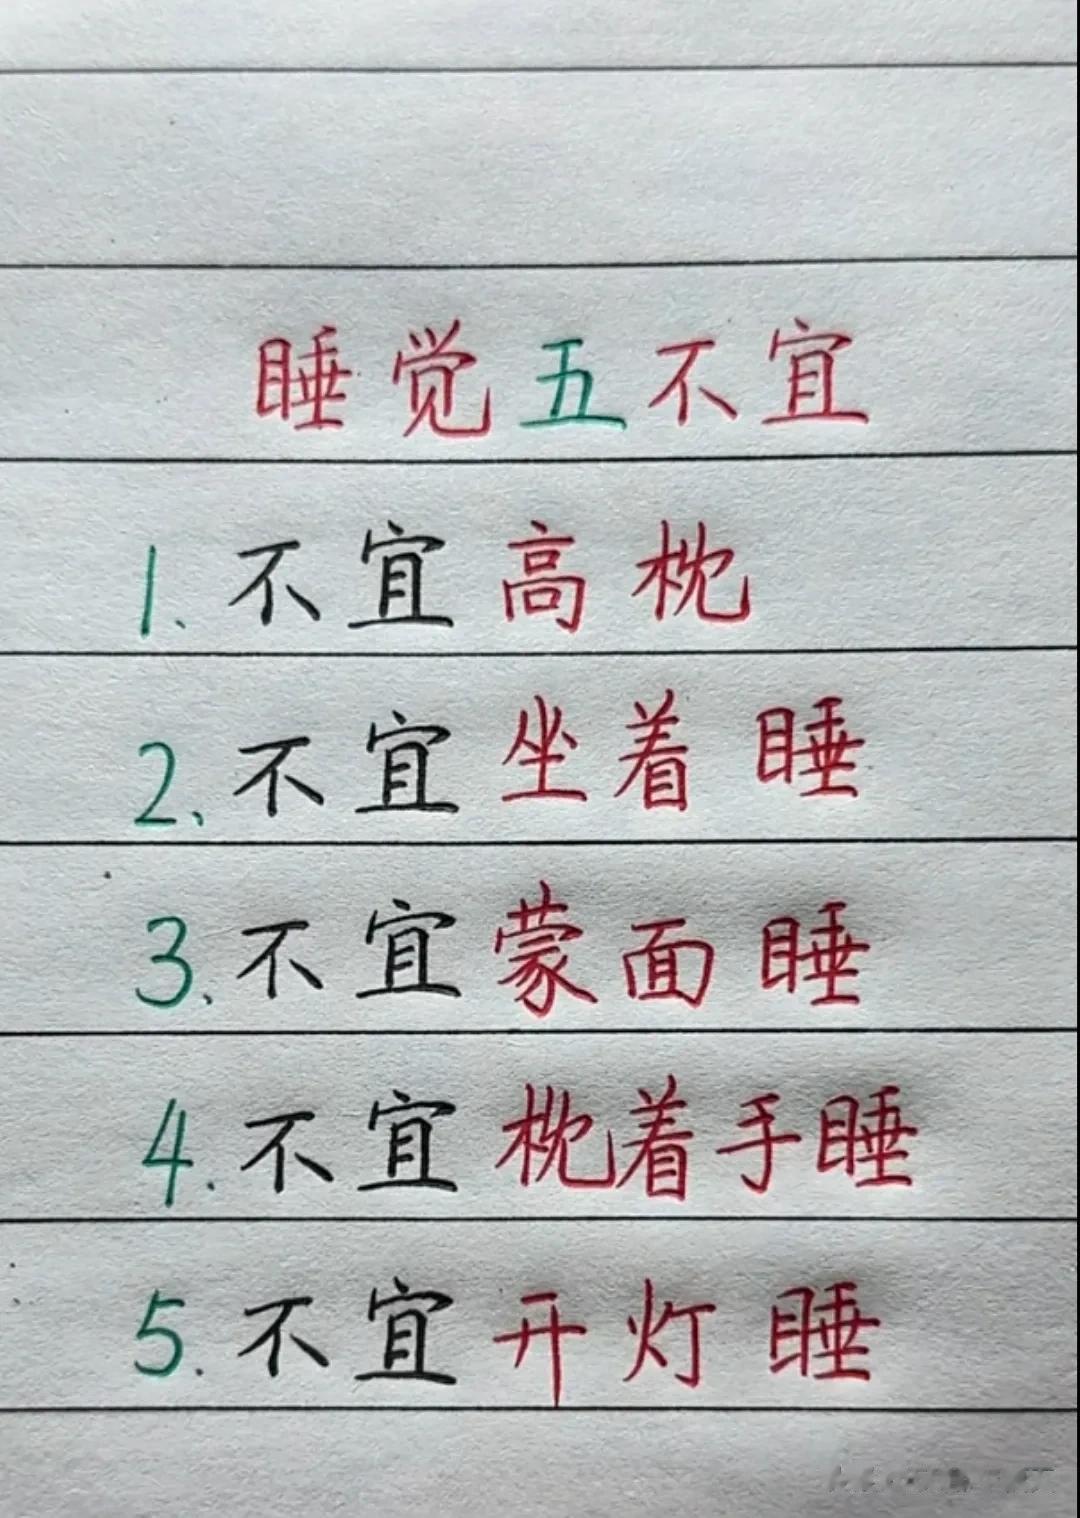 睡觉五不宜
1、不宜高枕
2、不宜坐着睡
3、不宜蒙面睡
4.不宜枕着手睡
5.不宜开灯睡